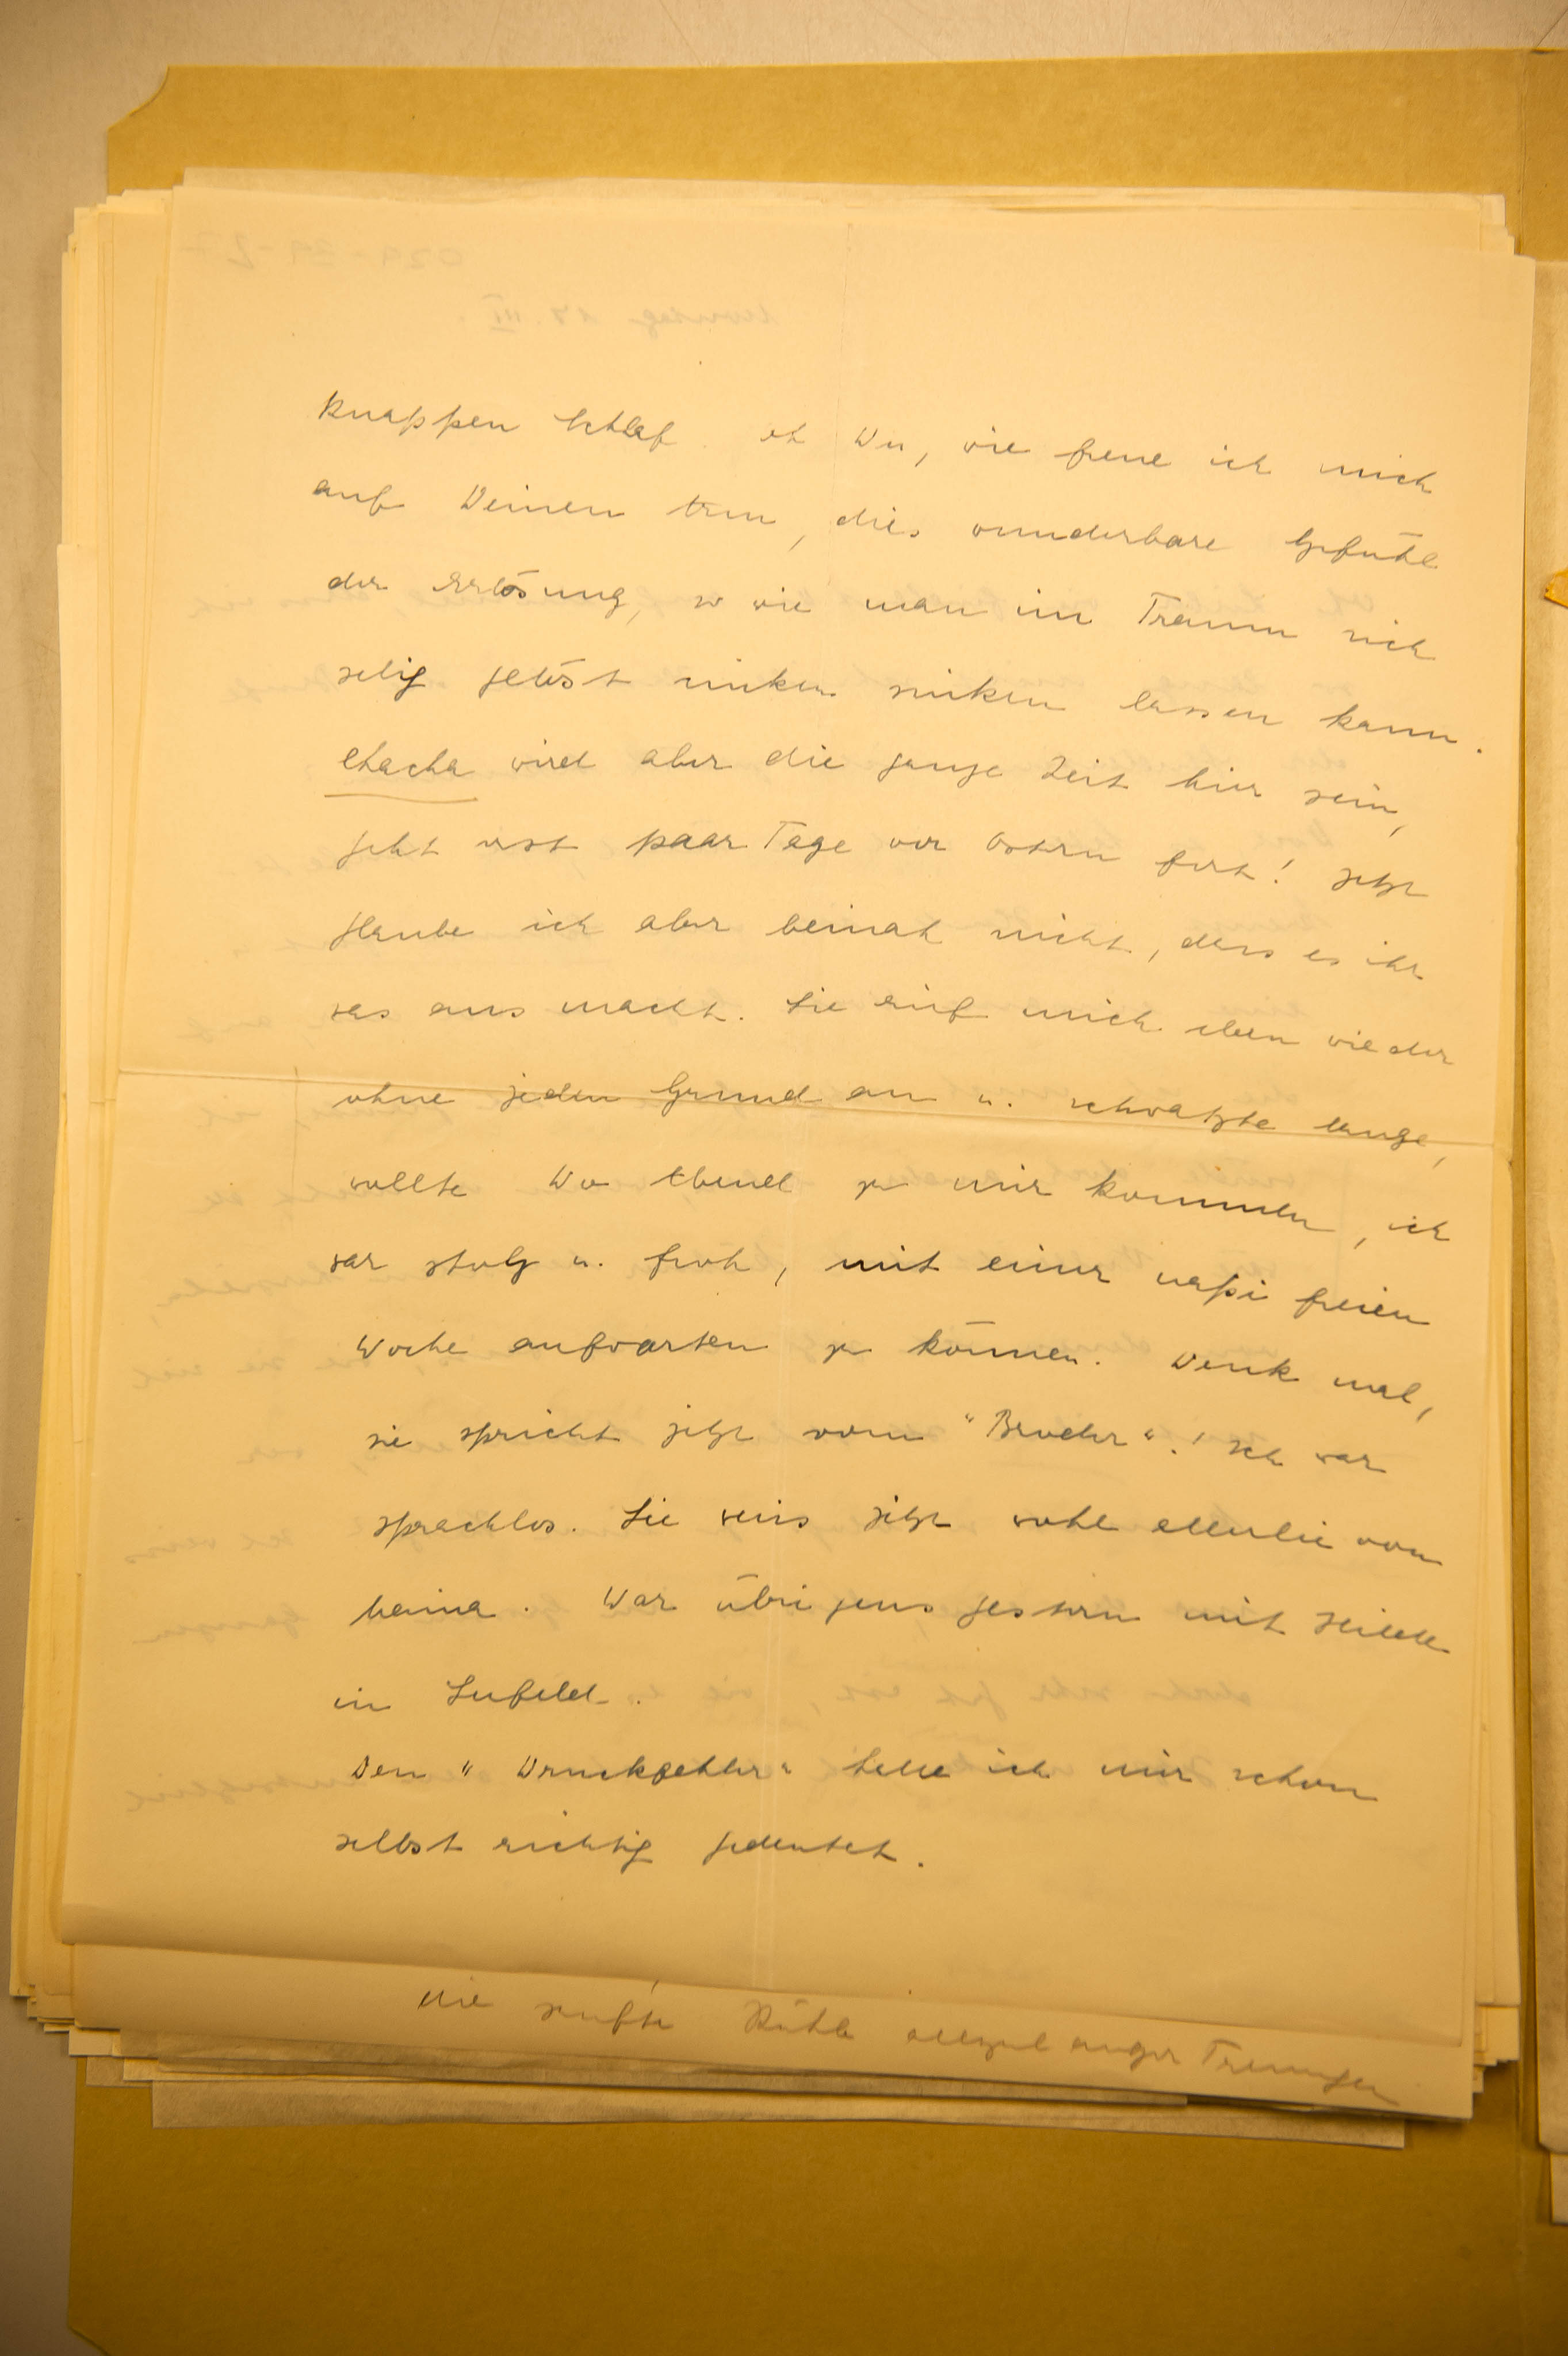 knappen Schlaf. Oh Du, wie freue ich mich
auf Deinen Arm, dies wunderbare Gefühl
der Erlösung, so wie man im Traum sich
selig gelöst sinken lassen kann.
Chacha wird aber die ganze Zeit hier sein,
geht erst paar Tage vor Ostern fort! Jetzt
glaube ich aber beinah nicht, dass es ihr
was aus macht. Sie rief mich eben wieder
ohne jeden Grund an u. schwatzte lange,
wollte Do Abend zu mir kommen, ich
war stolz u. froh, mit einer freien
Woche aufwarten zu können. Denk mal,
sie spricht jetzt vom "Bruder"! Ich war
sprachlos. Sie weiss jetzt wohl allerlei von
. War übrigens gestern mit
in Seefeld.
Den "Druckfehler" habe ich mir schon
selbst richtig gedeutet.
die sanfte Kühle allzulanger